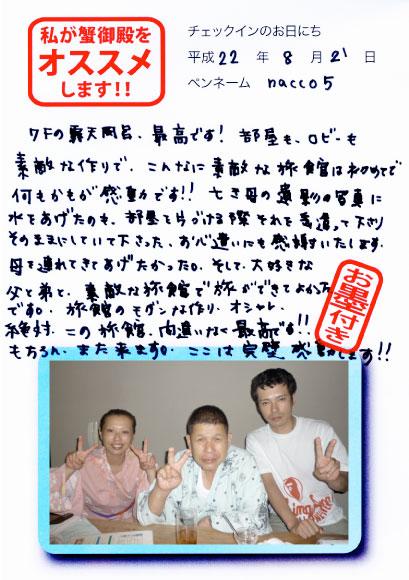 私が蟹御殿を
オススメ
します!!
チェックインのお日にち
平成 22 年 8 月 21 日
ペンネーム nacco5
7Fの露天風呂、最高です! 部屋も、ロビーも
素敵な作りで、こんなに素敵な旅館は初めてで
何もかもが感動です!! 亡き母の遺影の写真に
水をあげたのも、部屋を片づける際それを気遣って下さり
そのままにしていて下さった、お心遣いにも感謝いたします。
母を連れてきてあげたかった。そして、大好きな
父と弟と、素敵な旅館で旅ができてよかった
です。旅館のモダンな作り、オシャレ、
絶対、この旅館、間違いなく最高です!!
もちろん、また来ます。ここは完璧 感動します!!
お墨付き